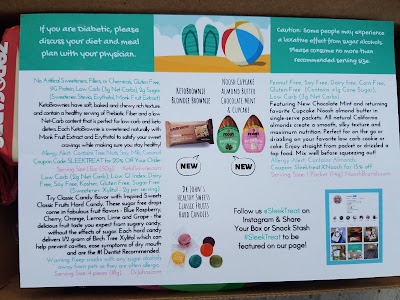 If you are Diabetic, please
discuss your diet and meal
plan with your physician.
Caution: Some people may experience
a laxative effect from sugar alcohols.
Please consume no more than
recommended serving size.
No Artificial Sweeteners, Fillers, or Chemicals, Gluten Free,
9G Protein, Low Carb (5g Net Carbs), 2g Sugar
(Sweetener: Stevia, Erythritol, Monk Fruit Extract)
KetoBrownies have soft baked and chewy rich texture
and contain a healthy serving of Prebiotic Fiber and a low
Net-Carb content that is perfect for low-carb and keto
dieters. Each KetoBrownie is sweetened naturally with
Monk Fruit Extract and Erythritol to satisfy your sweet
cravings while making sure you stay healthy!
Allergy Alert: Contains Tree Nuts, Soy, Milk, Coconut
Coupon Code: SLEEKTREAT for 20% OFF Your Order
Serving Size: 1 Bar (50g) KetoBrownie.com
Low Carb (2g Net Carb), Low GI Index, Dairy
Free, Soy Free, Kosher, Gluten Free, Sugar-Free
(Sweetener: Xylitol - 2g per serving)
Try Classic Candy flavor with Inspired Sweets
Classic Fruits Hard Candy. These sugar free drops
come in fabulous fruit flavors - Blue Raspberry,
Cherry, Orange, Lemon, Lime and Grape - the
delicious fruit taste you expect from sugary candy,
without the effects of sugar. Each hard candy
delivers 1/2 gram of Birch Tree Xylitol which can
help prevent cavities, ease symptoms of dry mouth
and are the #1 Dentist Recommended.
Warning: Keep snacks with any sugar alcohols
away from pets as they are often allergic.
Serving Size: 4 pieces (18g) DrJohns.com
KetoBrownie
Blondie Brownie
Noosh Cupcake
Almond Butter
Chocolate Mint
& Cupcake
noosh
noosh
NEW
NEW
Dr. John's
Healthy Sweets
Classic Fruits
Hard Candies
Peanut Free, Soy Free, Dairy Free, Corn Free,
Gluten Free (Contains <1g Cane Sugar),
Low Carb (3g Net Carb)
Featuring New Chocolate Mint and returning
favorite Cupcake Noosh almond butter in
single-serve packets. All natural California
almonds create a smooth, silky texture and
maximum nutrition. Perfect for on the go or
drizzling on your favorite low carb cookie or
cake. Enjoy straight from pocket or drizzled a
top food. Mix well before squeezing out!
Allergy Alert: Contains Almonds
Coupon: SleekTreatXONoosh for 15% off
Serving Size: 1 Packet (14g) NooshBrands.com
Follow us #SleekTreat on
Instagram & Share
Your Box or Snack Stash
#SleekTreat to be
featured on our page!